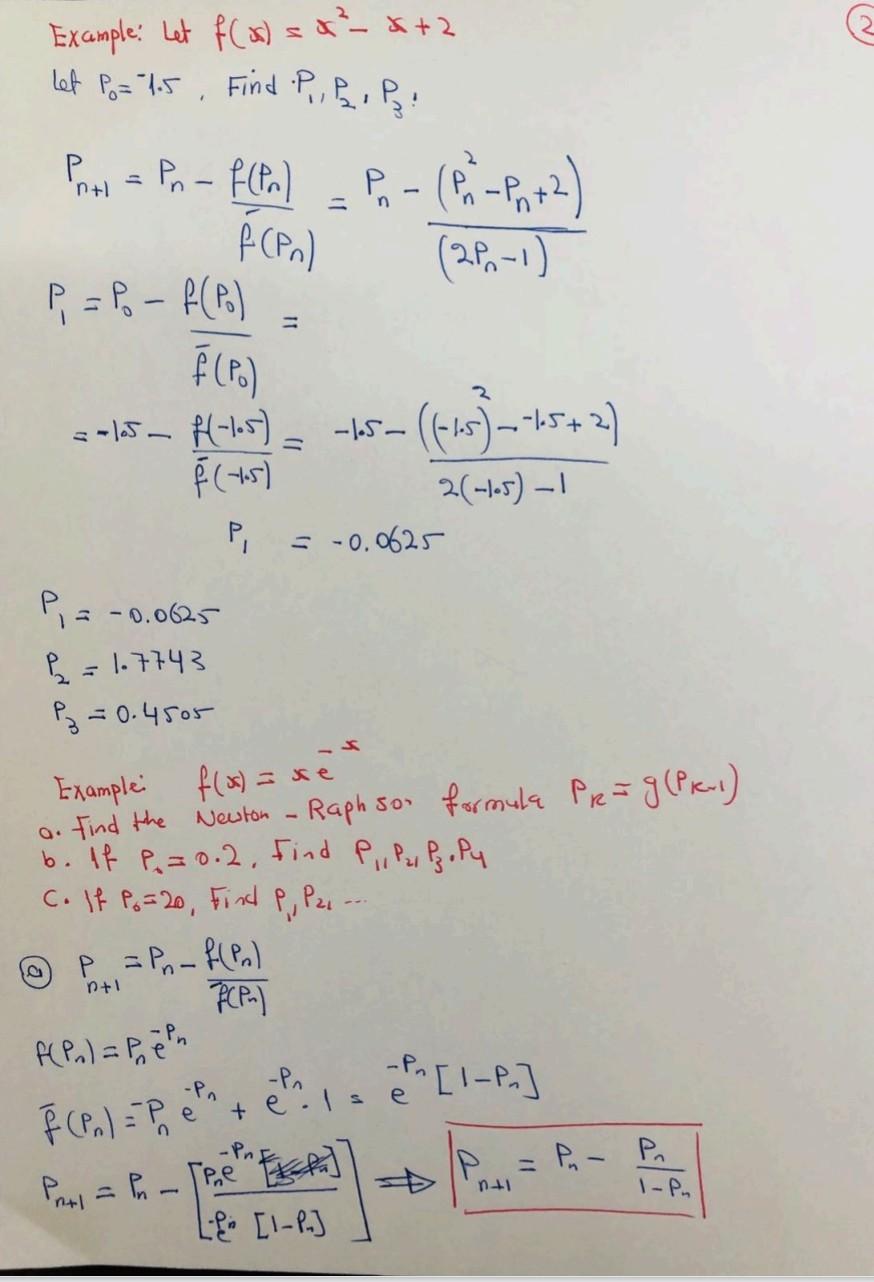 2
Example: Let f(x) = x² - x + 2
Let P₀ = ⁻1.5 , Find P₁, P₂, P₃.
Pₙ₊₁ = Pₙ - f(Pₙ) / f̄(Pₙ) = Pₙ - (Pₙ² - Pₙ + 2) / (2Pₙ - 1)
P₁ = P₀ - f(P₀) / f̄(P₀) =
= -1.5 - f(-1.5) / f̄(-1.5) = -1.5 - ((-1.5)² - ⁻1.5 + 2) / 2(-1.5) - 1
P₁ = -0.0625
P₁ = -0.0625
P₂ = 1.7743
P₃ = 0.4505
Example: f(x) = x e⁻ˣ
a. Find the Newton - Raphson formula Pₖ = g(Pₖ₋₁)
b. If P₀ = 0.2, Find P₁, P₂, P₃, P₄
C. If P₀ = 20, Find P₁, P₂, ...
ⓐ Pₙ₊₁ = Pₙ - f(Pₙ) / f̄(Pₙ)
f(Pₙ) = Pₙ e^-Pₙ
f̄(Pₙ) = ⁻Pₙ e^-Pₙ + e^-Pₙ . 1 = e^-Pₙ [1 - Pₙ]
Pₙ₊₁ = Pₙ - [Pₙ e^-Pₙ / e^-Pₙ [1 - Pₙ]] ⇒ Pₙ₊₁ = Pₙ - Pₙ / 1 - Pₙ